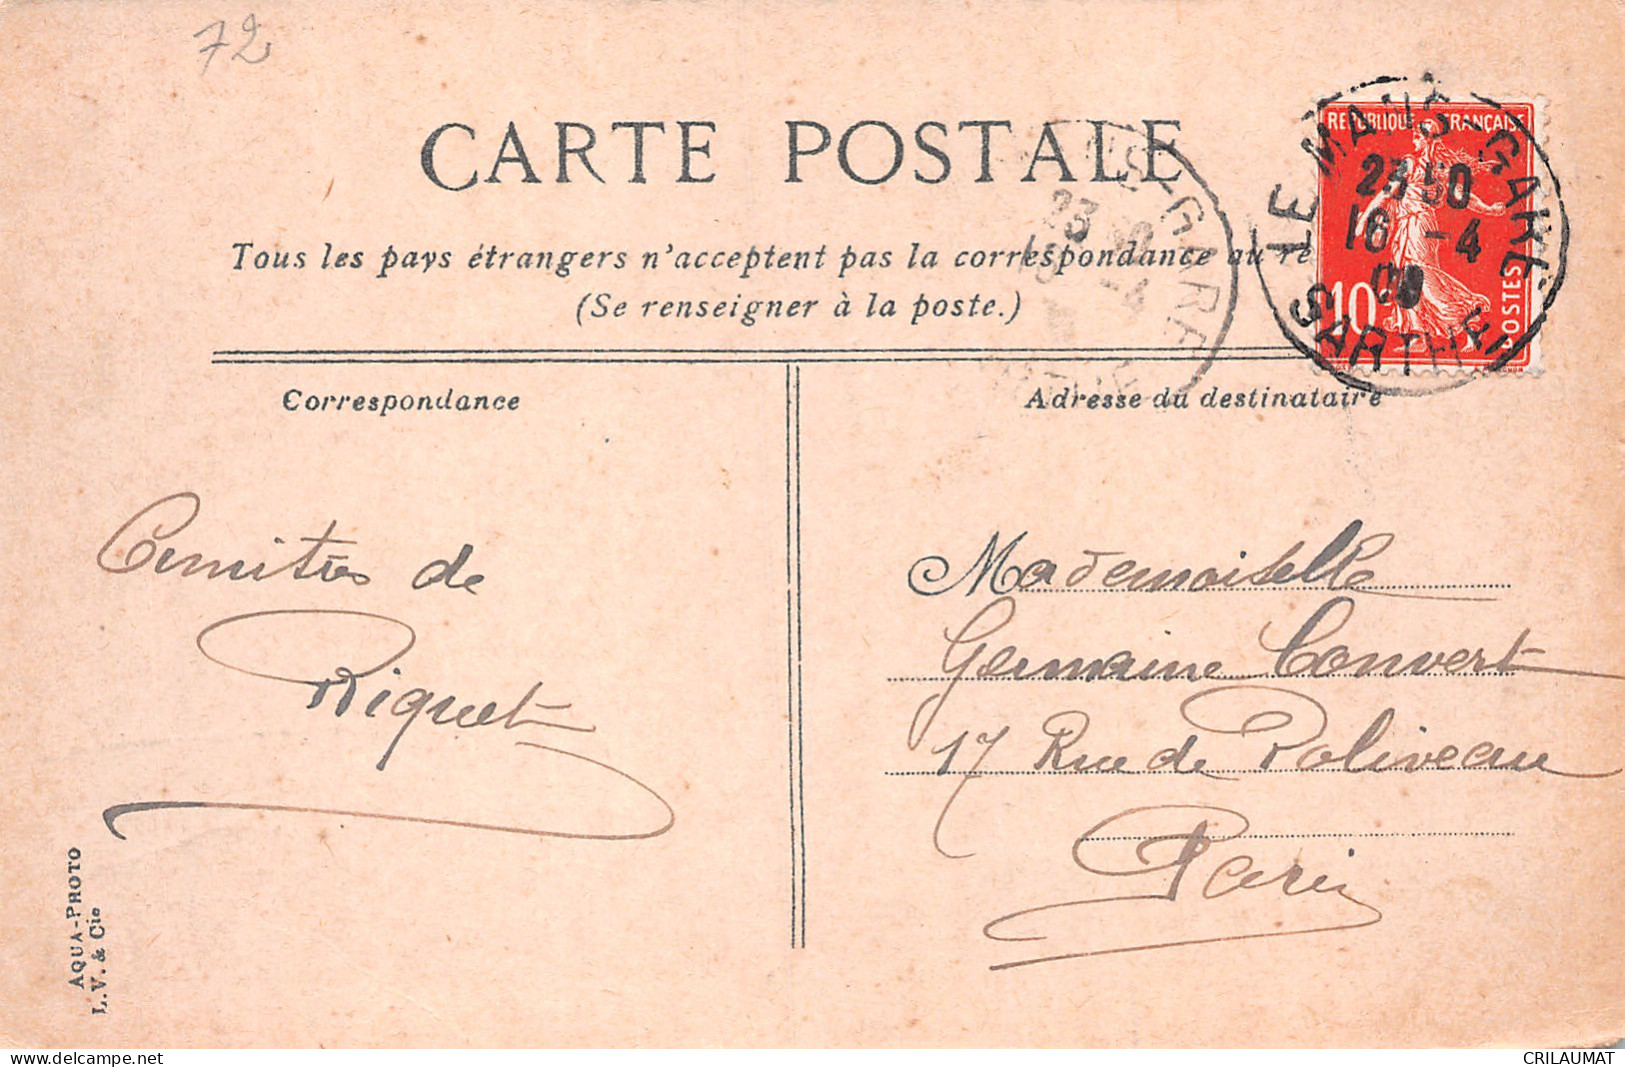 72
CARTE POSTALE
Tous les pays étrangers n'acceptent pas la correspondance au re
(Se renseigner à la poste.)
REPUBLIQUE FRANÇAISE
10c
POSTES
LE MANS-GARE
23 50
16 -4
SARTHE
S-GARE
23
-4
Correspondance
Adresse du destinataire
Amitiés de
Riquet
Mademoiselle
Germaine Convert
17 Rue de Poliveau
Paris
AQUA-PHOTO
L.V. & Cie
CRILAUMAT